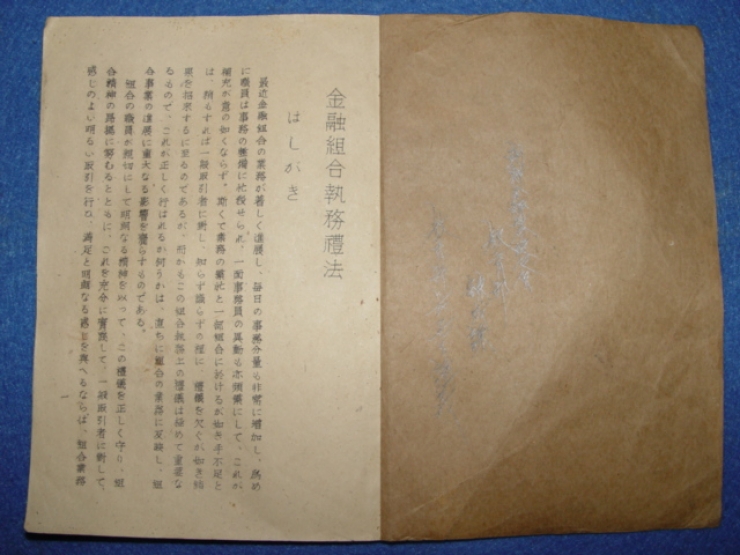 金融組合執務禮法
はしがき
最近金融組合の業務が著しく進展し、毎日の事務分量も非常に増加し、為め
に職員は事務の整備に忙殺せられ、一面事務員の異動も亦頻繁にして、これが
補充が意の如くならず、斯くて業務の繁忙と一部組合に於けるが如き手不足と
は、稍もすれば一般取引者に對し、知らず識らずの種に、禮儀を欠ぐが如き結
果を招來するに至るのであるが、而かもこの組合執務上の禮儀は極めて重要な
るもので、これが正しく行はれるか何うかは、直ちに組合の業務に反映し、組
合事業の進展に重大なる影響を齎らすものである。
組合の職員が親切にして明朗なる精神を以って、この禮儀を正しく守り、組
合精神の昂揚に努むるとともに、これを充分に實踐して、一般取引者に對して、
感じのよい明るい取引を行ひ、滿足と明朗なる感じを與へるならば、組合業務